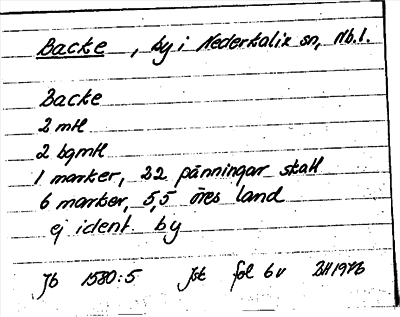 Backe, by i Nederkalix sn, Nb.l.
Backe
2 mtl
2 bgmtl
1 marker, 22 pänningar skatt
6 marker, 5,5 öres land
ej ident. by
Jb 1580:5 fol 6v BH 1976